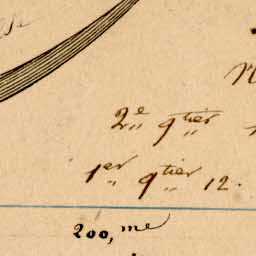 2e,, qtier,,
1er,, qtier,, 12.
200,me